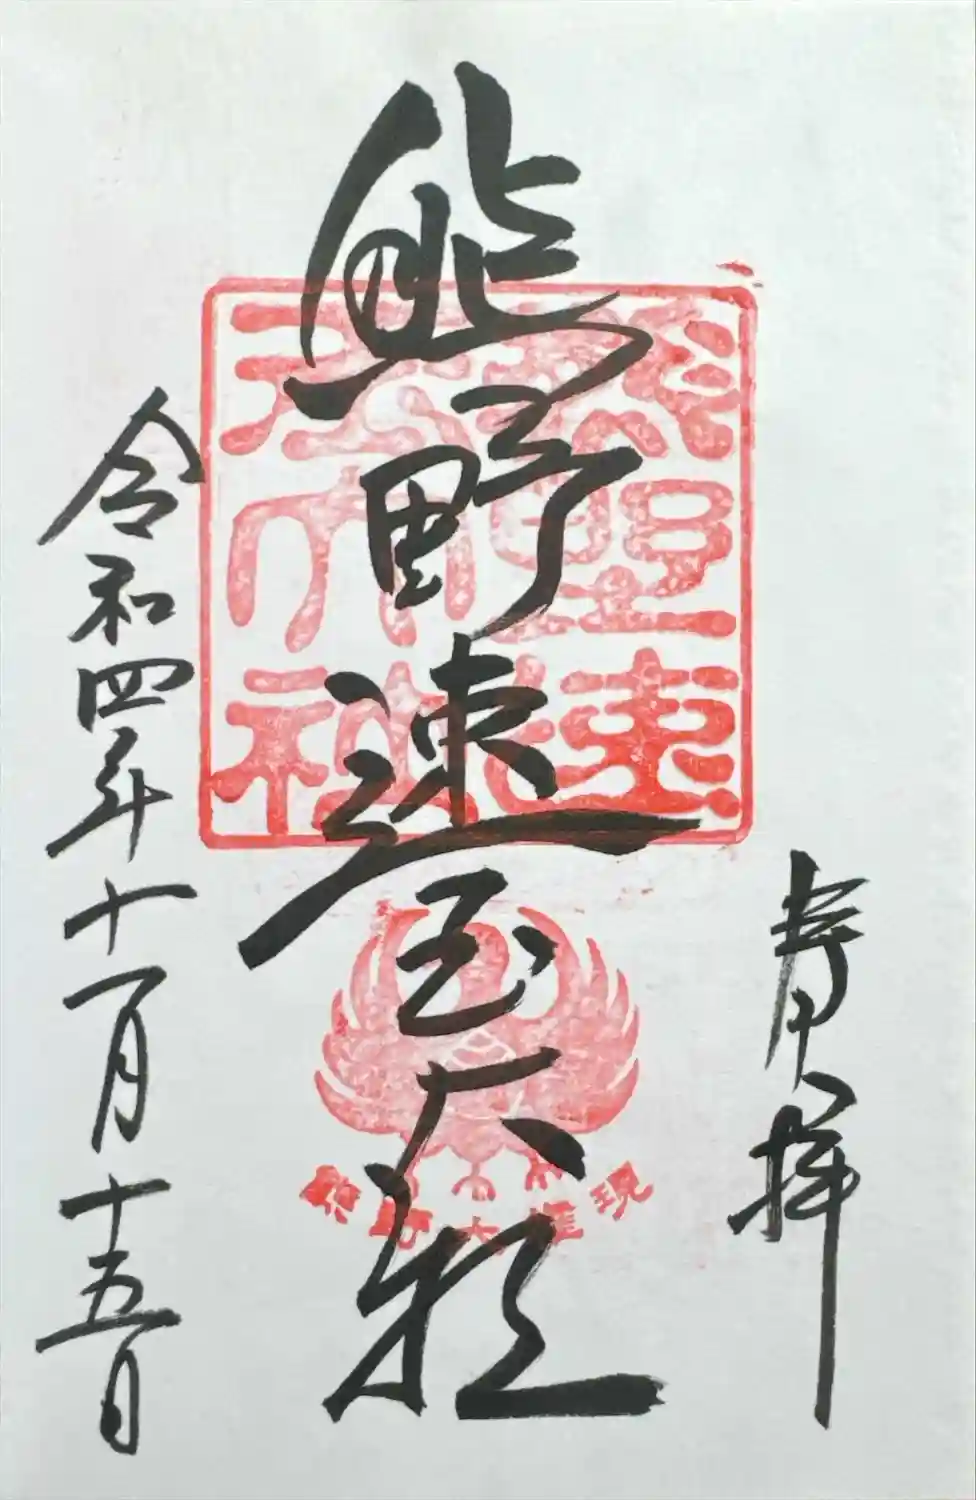 奉拝
熊野速玉大社
熊野速
玉大社
熊野大権現
令和四年十一月十五日